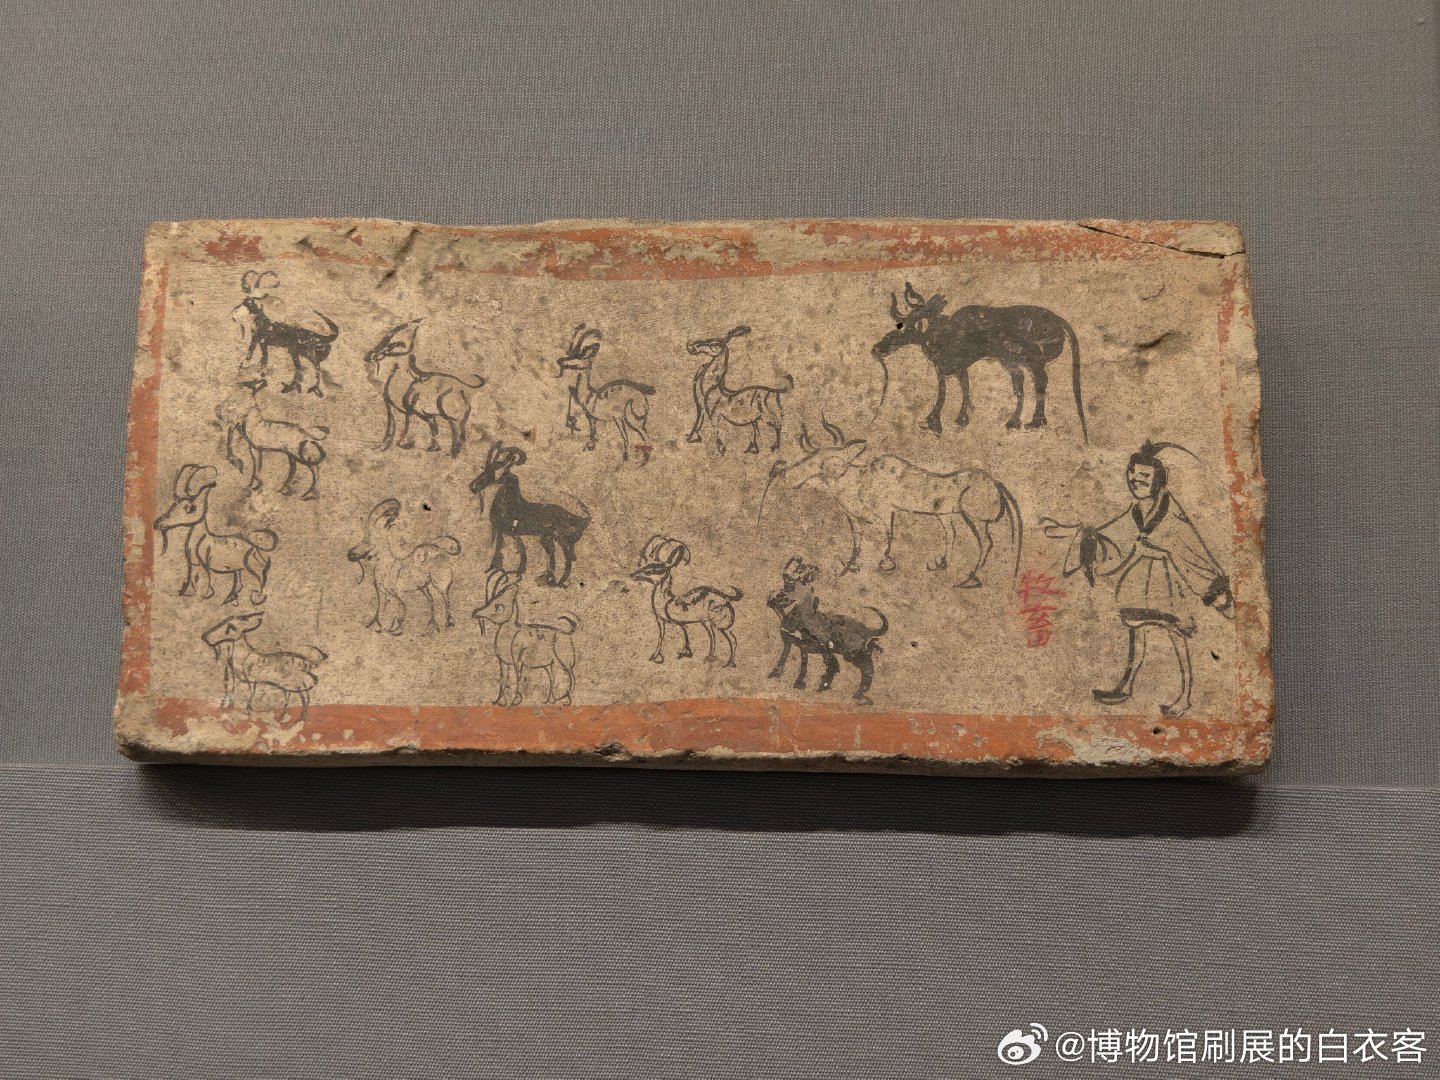 牧畜
@博物馆刷展的白衣客